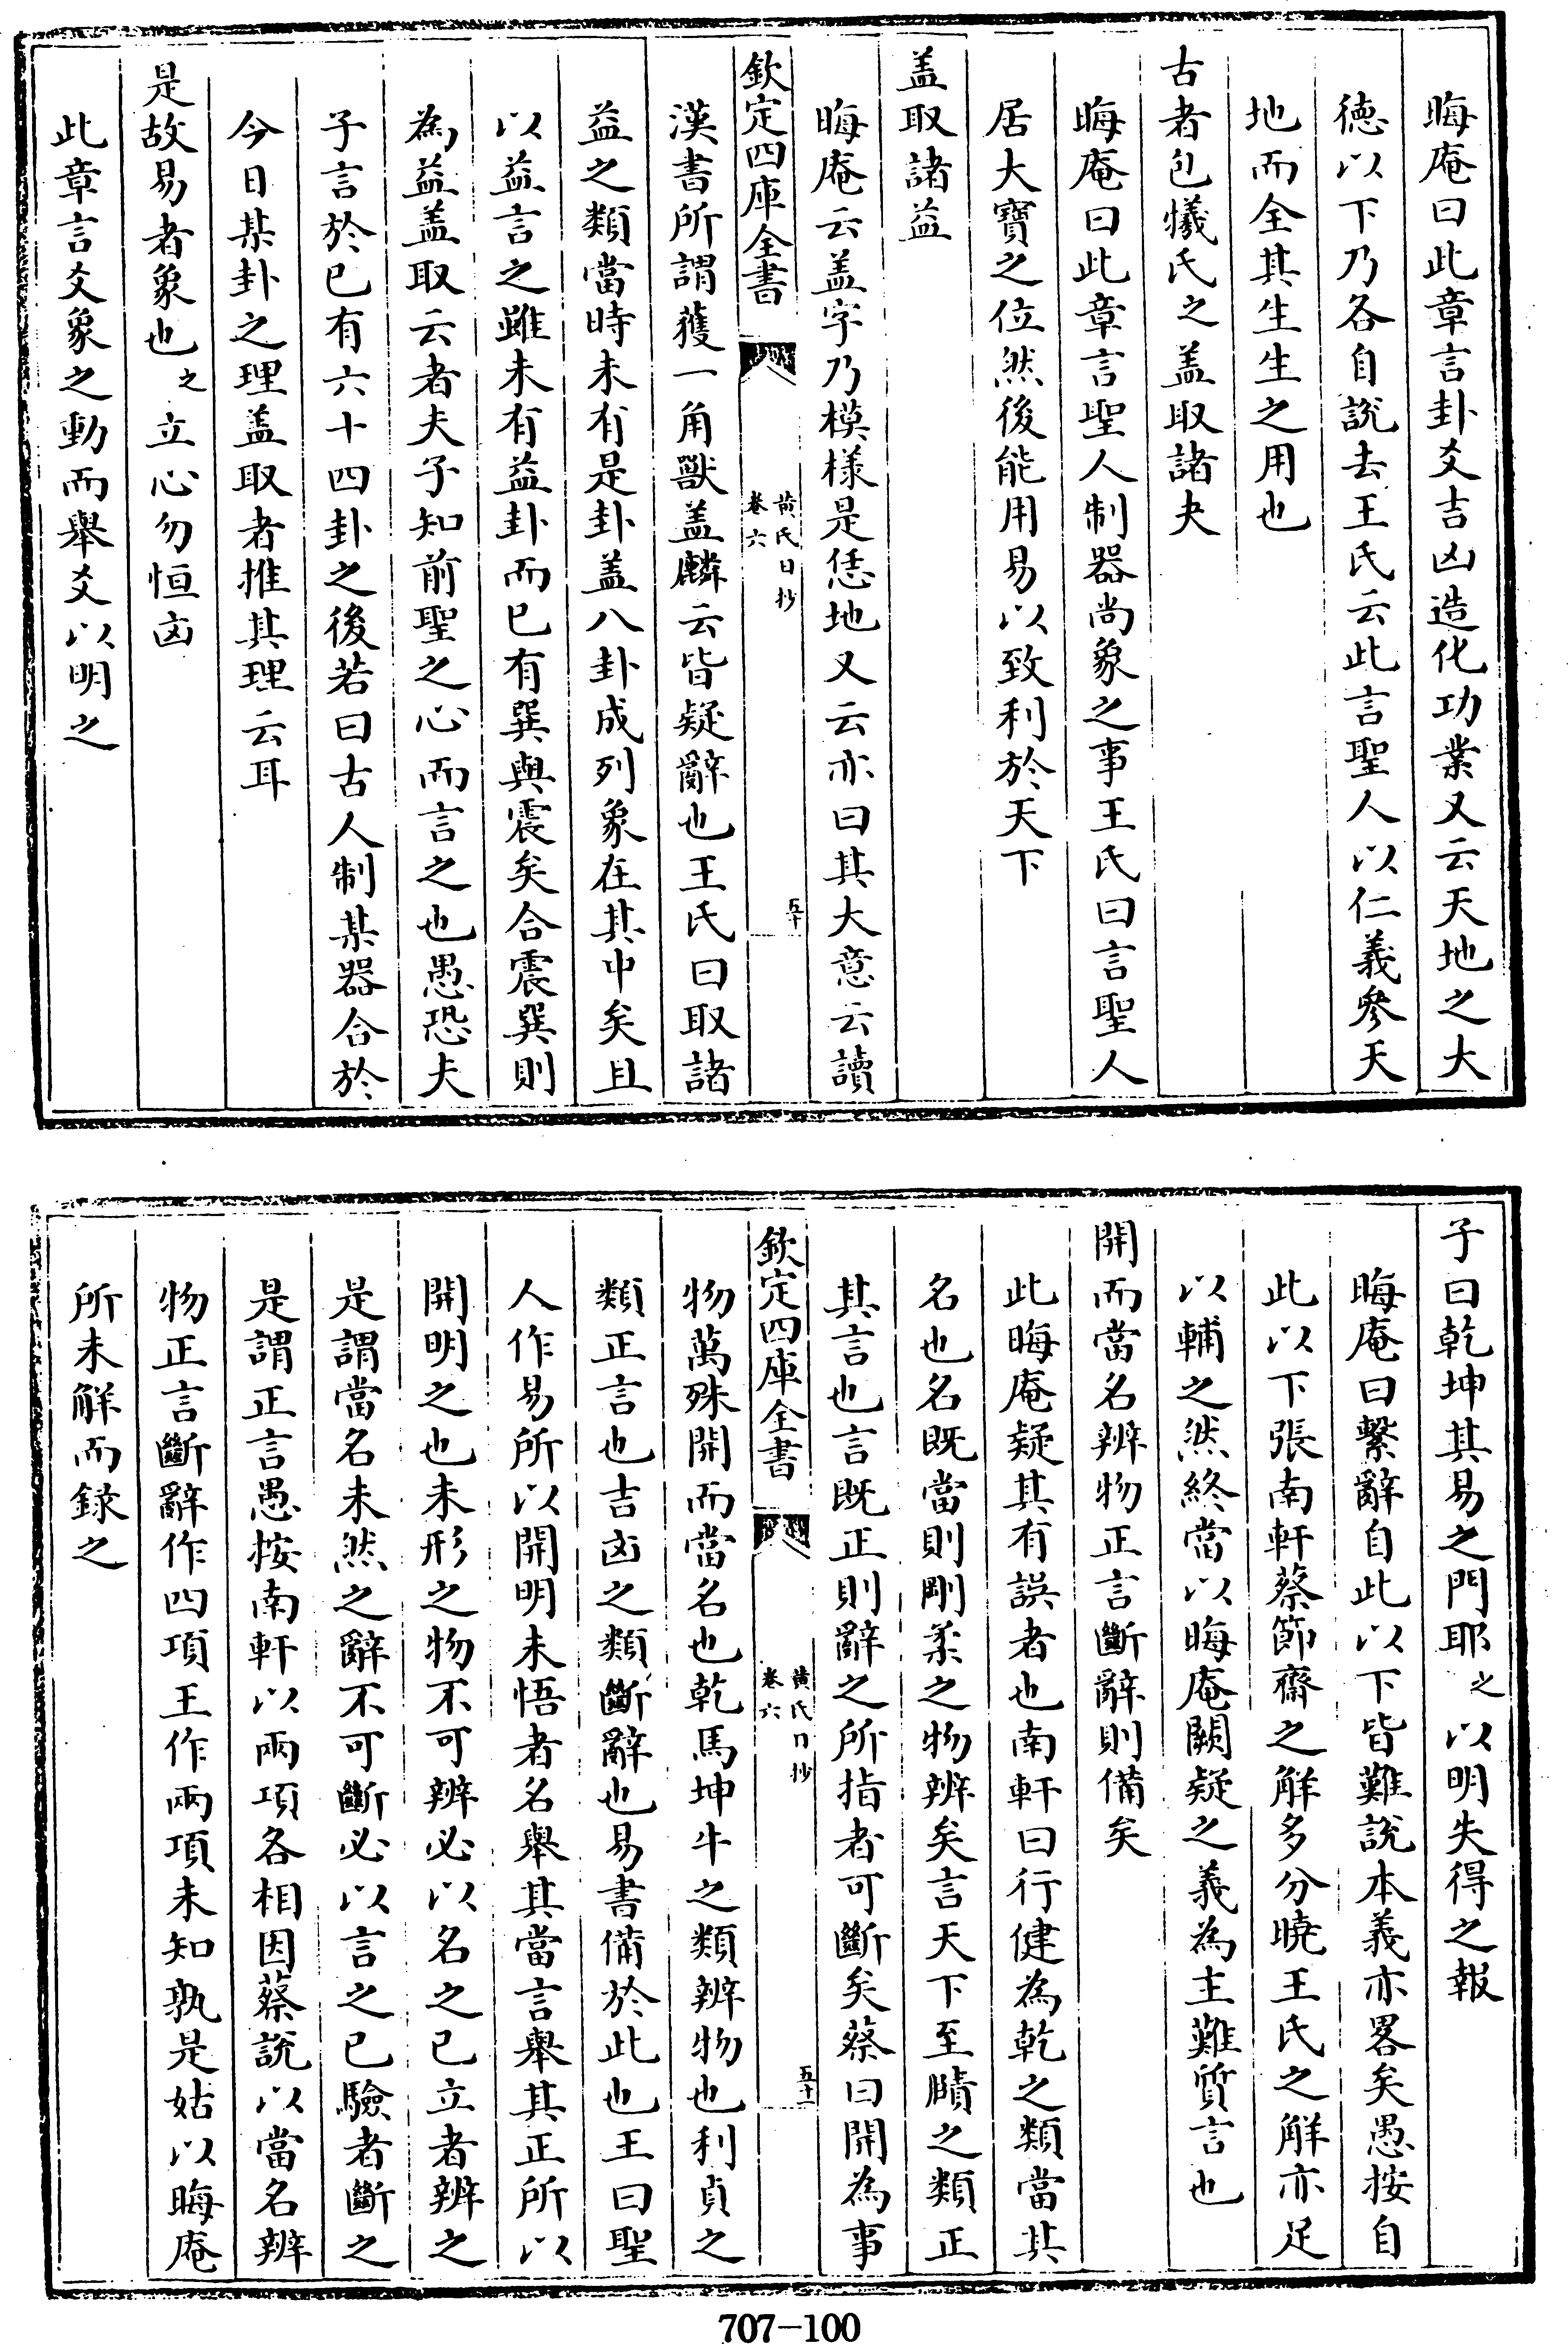 晦庵曰此章言卦爻吉凶造化功業又云天地之大
德以下乃各自說去王氏云此言聖人以仁義參天
地而全其生生之用也
古者包犧氏之盖取諸夬
晦庵曰此章言聖人制器尚象之事王氏曰言聖人
居大寶之位然後能用易以致利於天下
盖取諸益
晦庵云盖字乃模樣是恁地又云亦曰其大意云讀
欽定四庫全書
黄氏日抄
卷六
五十
漢書所謂獲一角獸盖麟云皆疑辭也王氏曰取諸
益之類當時未有是卦盖八卦成列象在其中矣且
以益言之雖未有益卦而已有巽與震矣合震巽則
為益盖取云者夫子知前聖之心而言之也愚恐夫
子言於已有六十四卦之後若曰古人制某器合於
今日某卦之理盖取者推其理云耳
是故易者象也之立心勿恒凶
此章言爻象之動而舉爻以明之
子曰乾坤其易之門耶之以明失得之報
晦庵曰繫辭自此以下皆難說本義亦畧矣愚按自
此以下張南軒蔡節齋之解多分曉王氏之解亦足
以輔之然終當以晦庵闕疑之義為主難質言也
開而當名辨物正言斷辭則備矣
此晦庵疑其有誤者也南軒曰行健為乾之類當其
名也名既當則剛柔之物辨矣言天下至賾之類正
其言也言既正則辭之所指者可斷矣蔡曰開為事
欽定四庫全書
黄氏日抄
卷六
五十一
物萬殊開而當名也乾馬坤牛之類辨物也利貞之
類正言也吉凶之類斷辭也易書備於此也王曰聖
人作易所以開明未悟者名舉其當言舉其正所以
開明之也未形之物不可辨必以名之已立者辨之
是謂當名未然之辭不可斷必以言之已驗者斷之
是謂正言愚按南軒以兩項各相因蔡說以當名辨
物正言斷辭作四項王作兩項未知孰是姑以晦庵
所未解而錄之
707-100